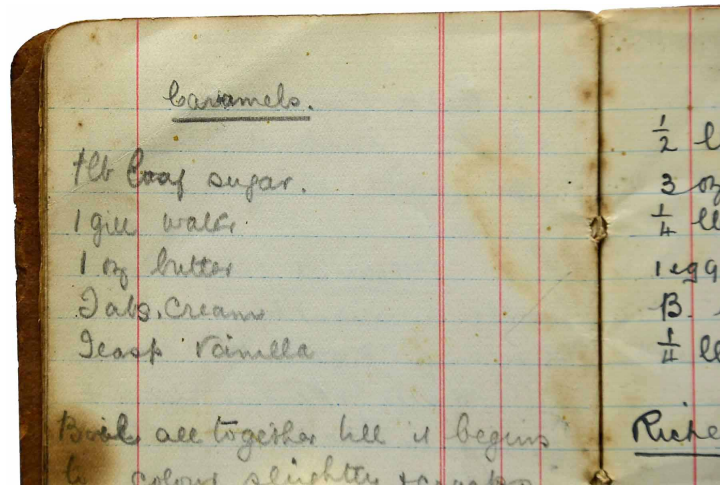 Caramels.
1lb loaf sugar.
1 gill water
1 oz butter
Tabs. Cream
Teasp Vanilla
Boil all together till it begins
to colour slightly
½
3 oz
¼
1 egg
B.
¼
Riche